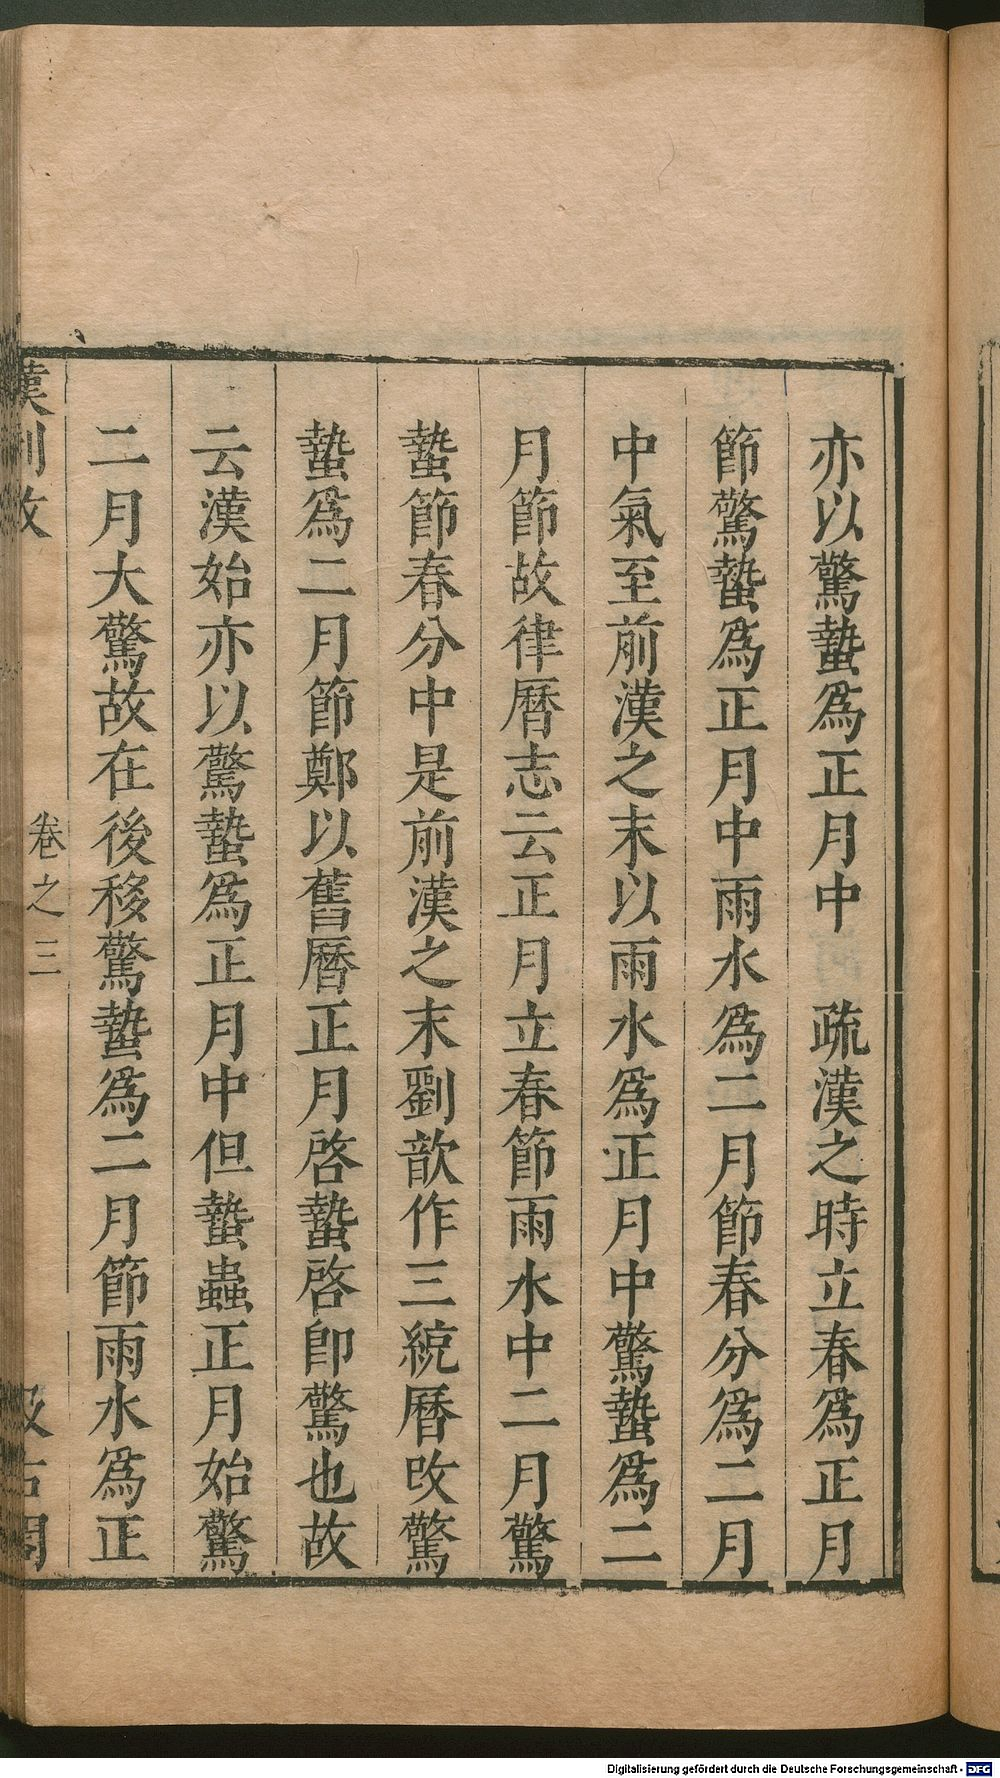 亦以驚蟄爲正月中　疏漢之時立春爲正月
節驚蟄爲正月中雨水爲二月節春分爲二月
中氣至前漢之末以雨水爲正月中驚蟄爲二
月節故律曆志云正月立春節雨水中二月驚
蟄節春分中是前漢之末劉歆作三統曆改驚
蟄爲二月節鄭以舊曆正月啓蟄啓卽驚也故
云漢始亦以驚蟄爲正月中但蟄蟲正月始驚
二月大驚故在後移驚蟄爲二月節雨水爲正
漢制攷
卷之三
汲古閣
Digitalisierung gefördert durch die Deutsche Forschungsgemeinschaft - DFG